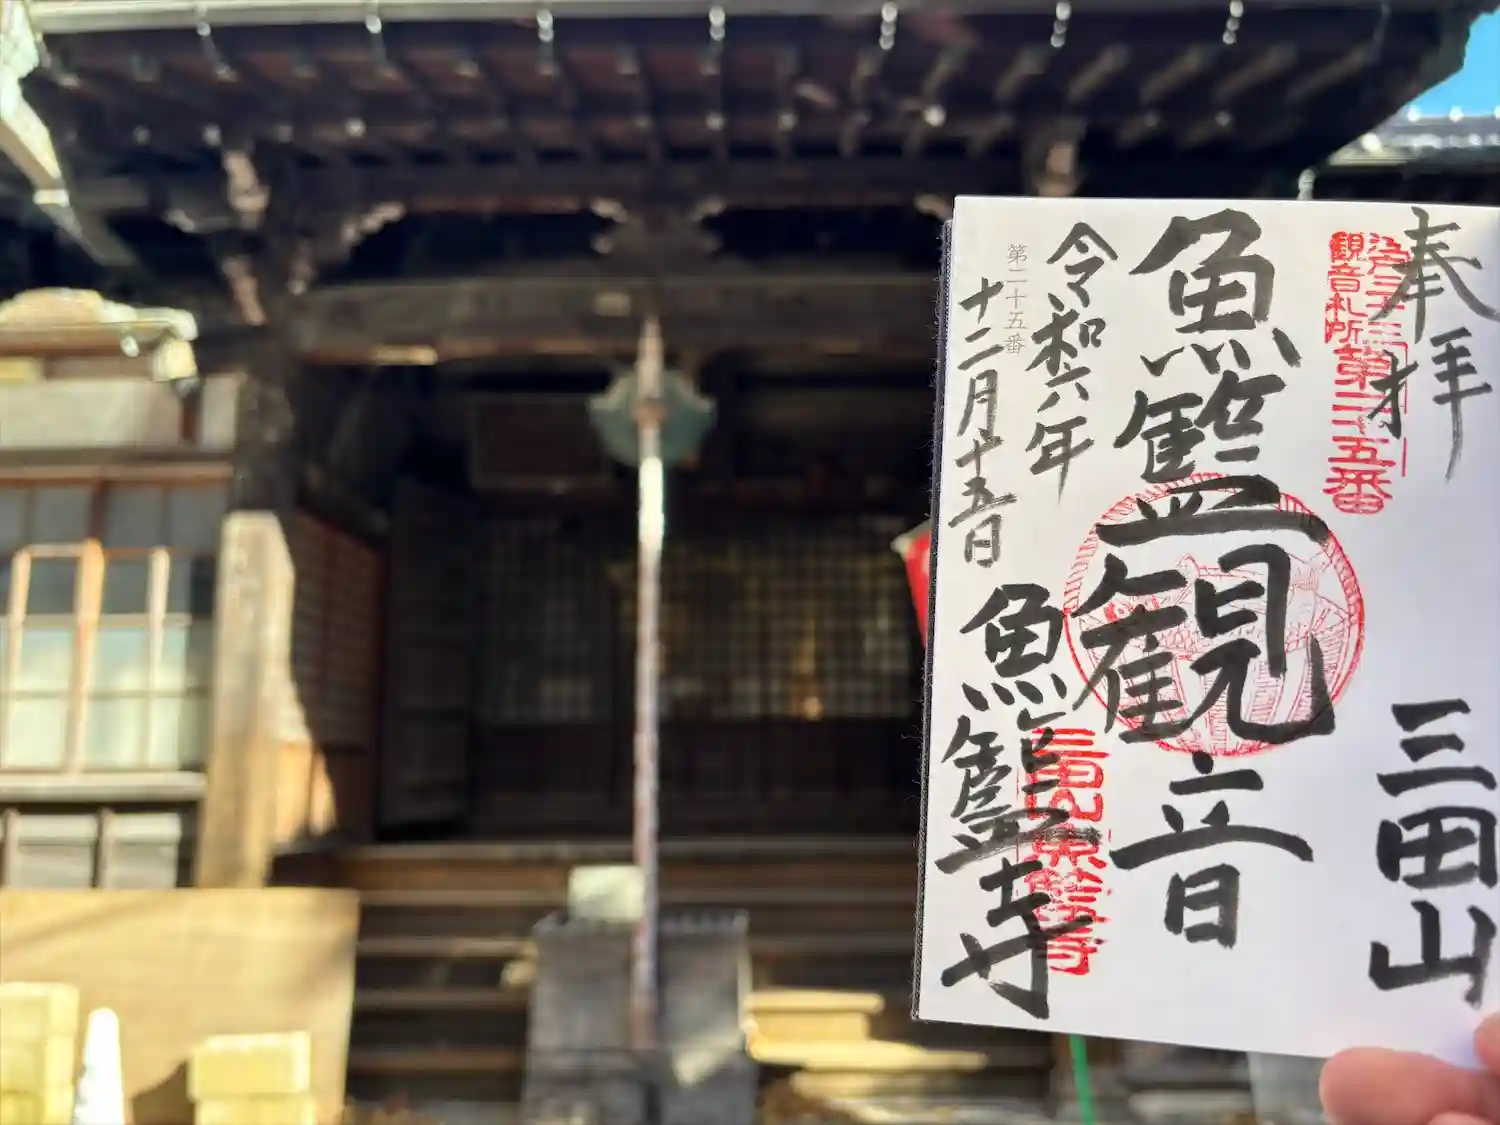 奉拝
三田山
江戸三十三
観音札所
第二十五番
魚籃観音
令和六年
第二十五番
十二月十五日
魚籃寺
三田山
魚籃寺